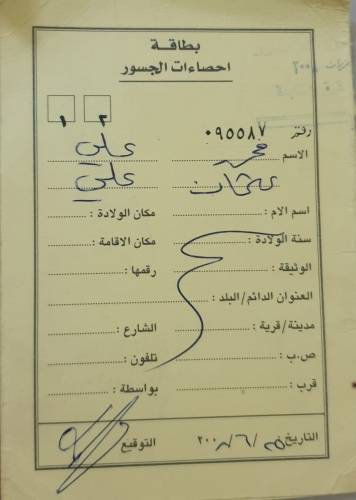 بطاقة
احصاءات الجسور
١ ٢
رقم ٠٩٥٥٨٧
الاسم محمد علي
عثمان علي
اسم الام : مكان الولادة :
سنة الولادة : مكان الاقامة :
الوثيقة : رقمها :
العنوان الدائم/البلد :
مدينة/قرية : الشارع :
ص.ب : تلفون :
قرب : بواسطة :
التاريخ / ٦ / ٢٠٠٨ التوقيع